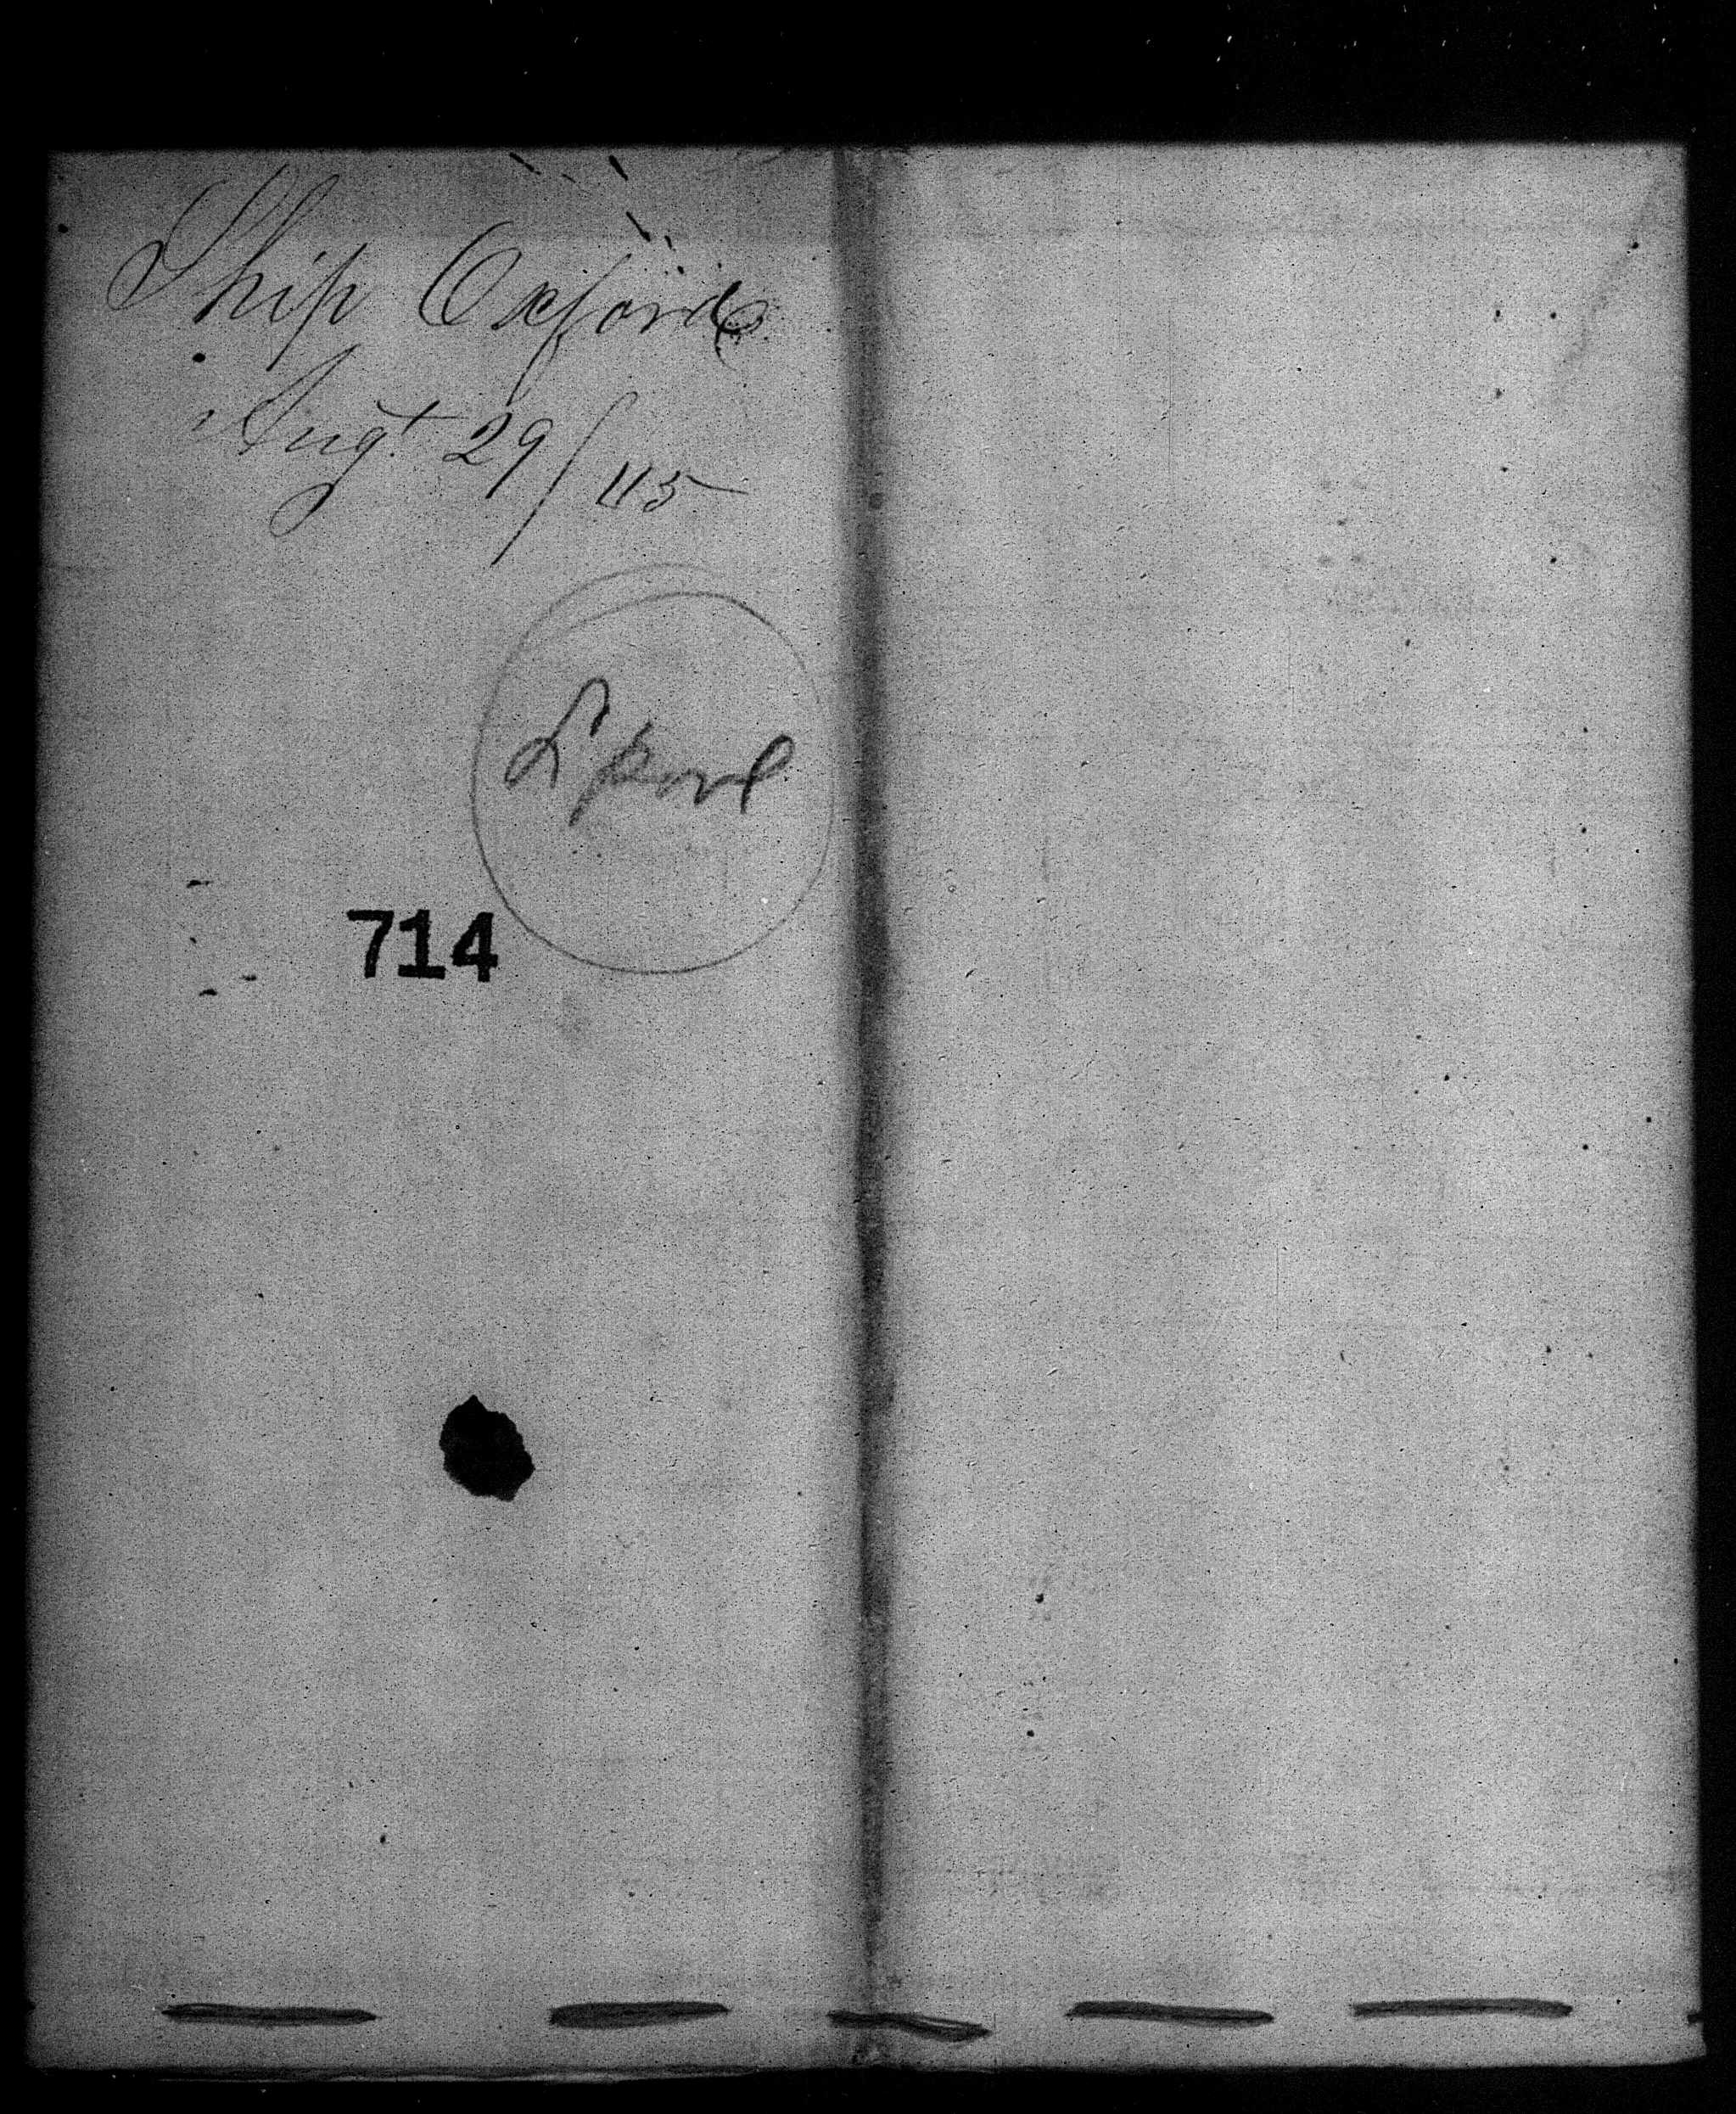 Ship Oxford
Augt. 29/45
L'pool
714